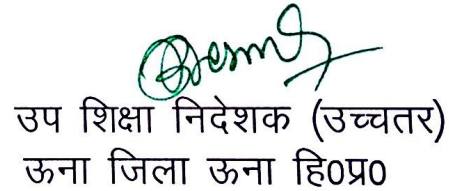 उप शिक्षा निदेशक (उच्चतर)
ऊना जिला ऊना हि0प्र0